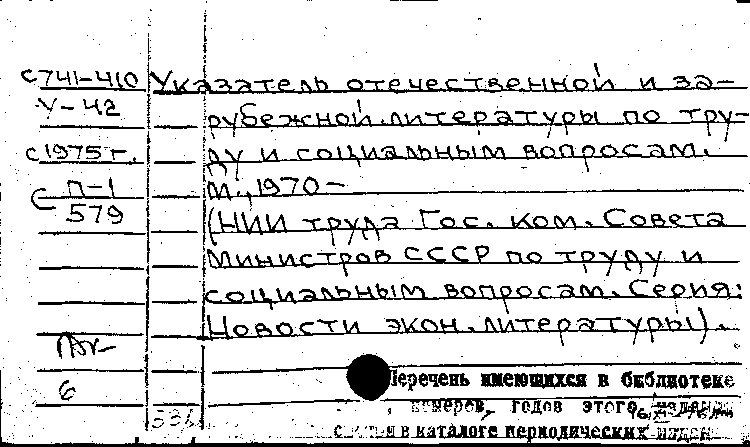 С741-410 Указатель отечественной и за-
У-42 рубежной литературы по тру-
с 1975 г. ду и социальным вопросам.
С П-1 М., 1970-
579 (НИИ труда Гос. ком. Совета
Министров СССР по труду и
социальным вопросам. Серия:
Новости экон. литературы).
6 Перечень имеющихся в библиотеке
номеров, годов этого
в каталоге периодических